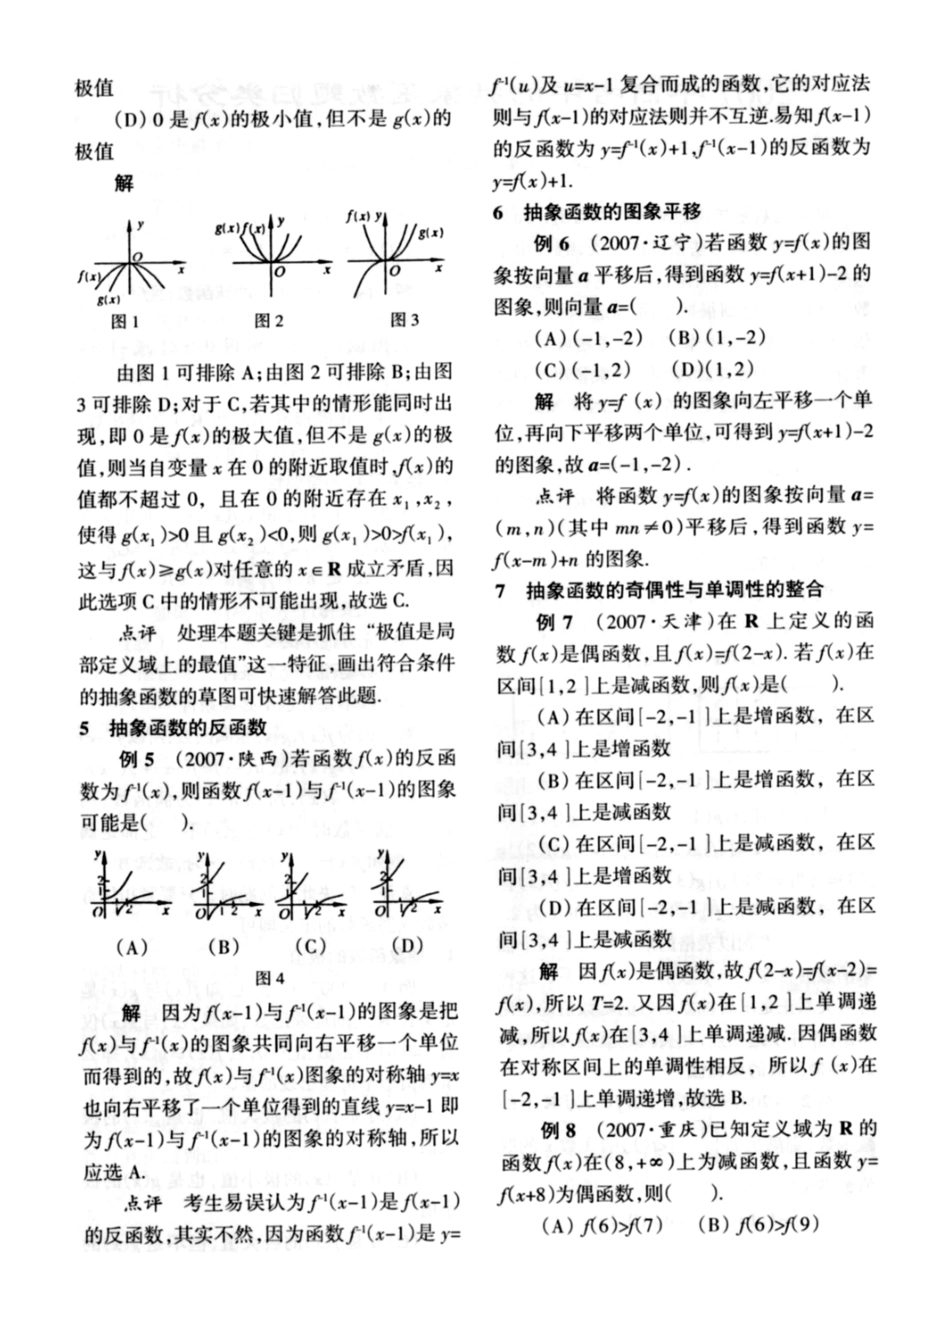 极值
(D) 0 是 f(x)的极小值,但不是 g(x)的
极值
解
y O x f(x) g(x)
g(x) f(x) y O x
f(x) y g(x) O x
图 1 图 2 图 3
由图 1 可排除 A;由图 2 可排除 B;由图
3 可排除 D;对于 C,若其中的情形能同时出
现,即 0 是 f(x)的极大值,但不是 g(x)的极
值,则当自变量 x 在 0 的附近取值时,f(x)的
值都不超过 0，且在 0 的附近存在 x₁,x₂，
使得 g(x₁)>0 且 g(x₂)<0,则 g(x₁)>0>f(x₁),
这与 f(x)≥g(x)对任意的 x∈R 成立矛盾,因
此选项 C 中的情形不可能出现,故选 C.
点评 处理本题关键是抓住“极值是局
部定义域上的最值”这一特征,画出符合条件
的抽象函数的草图可快速解答此题.
5 抽象函数的反函数
例 5 (2007·陕西)若函数 f(x)的反函
数为 f⁻¹(x),则函数 f(x-1)与 f⁻¹(x-1)的图象
可能是( ).
(A) (B) (C) (D)
图 4
解 因为 f(x-1)与 f⁻¹(x-1)的图象是把
f(x)与 f⁻¹(x)的图象共同向右平移一个单位
而得到的,故 f(x)与 f⁻¹(x)图象的对称轴 y=x
也向右平移了一个单位得到的直线 y=x-1 即
为 f(x-1)与 f⁻¹(x-1)的图象的对称轴,所以
应选 A.
点评 考生易误认为 f⁻¹(x-1)是 f(x-1)
的反函数,其实不然,因为函数 f⁻¹(x-1)是 y=
f⁻¹(u)及 u=x-1 复合而成的函数,它的对应法
则与 f(x-1)的对应法则并不互逆.易知 f(x-1)
的反函数为 y=f⁻¹(x)+1,f⁻¹(x-1)的反函数为
y=f(x)+1.
6 抽象函数的图象平移
例 6 (2007·辽宁)若函数 y=f(x)的图
象按向量 a 平移后,得到函数 y=f(x+1)-2 的
图象,则向量 a=( ).
(A) (-1,-2) (B) (1,-2)
(C) (-1,2) (D)(1,2)
解 将 y=f (x) 的图象向左平移一个单
位,再向下平移两个单位,可得到 y=f(x+1)-2
的图象,故 a=(-1,-2).
点评 将函数 y=f(x)的图象按向量 a=
(m,n)(其中 mn≠0)平移后,得到函数 y=
f(x-m)+n 的图象.
7 抽象函数的奇偶性与单调性的整合
例 7 (2007·天津)在 R 上定义的函
数 f(x)是偶函数,且 f(x)=f(2-x). 若 f(x)在
区间[1,2]上是减函数,则 f(x)是( ).
(A) 在区间[-2,-1]上是增函数，在区
间[3,4]上是增函数
(B) 在区间[-2,-1]上是增函数，在区
间[3,4]上是减函数
(C) 在区间[-2,-1]上是减函数，在区
间[3,4]上是增函数
(D) 在区间[-2,-1]上是减函数，在区
间[3,4]上是减函数
解 因 f(x)是偶函数,故 f(2-x)=f(x-2)=
f(x),所以 T=2. 又因 f(x)在[1,2]上单调递
减,所以 f(x)在[3,4]上单调递减. 因偶函数
在对称区间上的单调性相反，所以 f (x)在
[-2,-1]上单调递增,故选 B.
例 8 (2007·重庆)已知定义域为 R 的
函数 f(x)在(8,+∞)上为减函数,且函数 y=
f(x+8)为偶函数,则( ).
(A) f(6)>f(7) (B) f(6)>f(9)